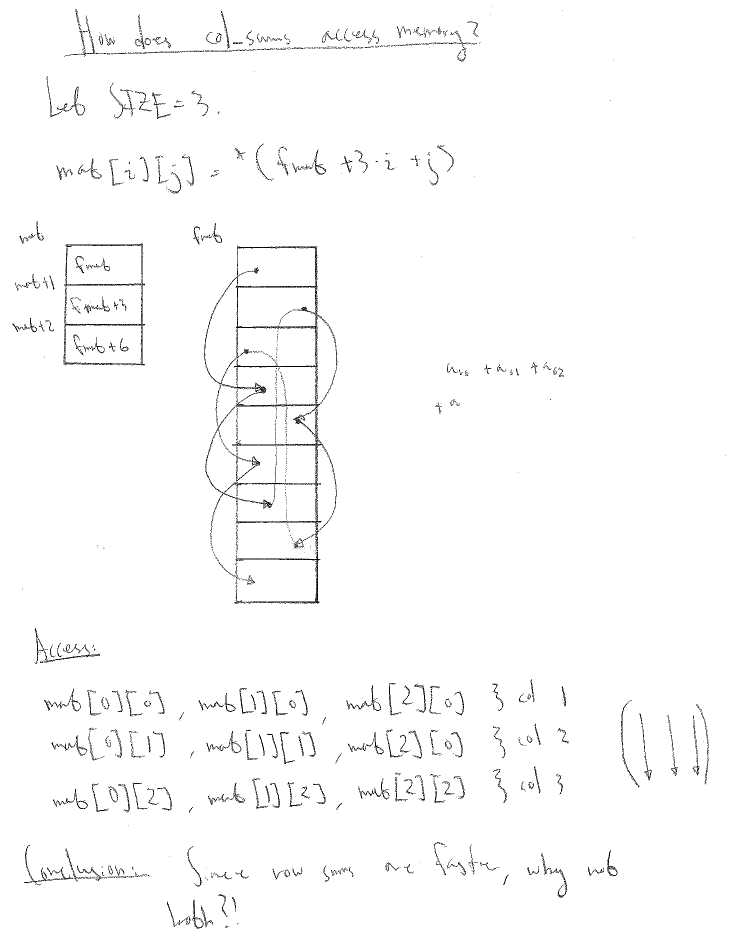 How does col_sums access memory?
Let SIZE = 3.
mat[i][j] = *(fmat + 3·i + j)
mat
fmat
fmat
mat+1
fmat+3
mat+2
fmat+6
+ a01 + a02
+ a
Access:
mat[0][0], mat[1][0], mat[2][0] } col 1
mat[0][1], mat[1][1], mat[2][0] } col 2
mat[0][2], mat[1][2], mat[2][2] } col 3
Conclusion: Since row sums are faster, why not
both?!